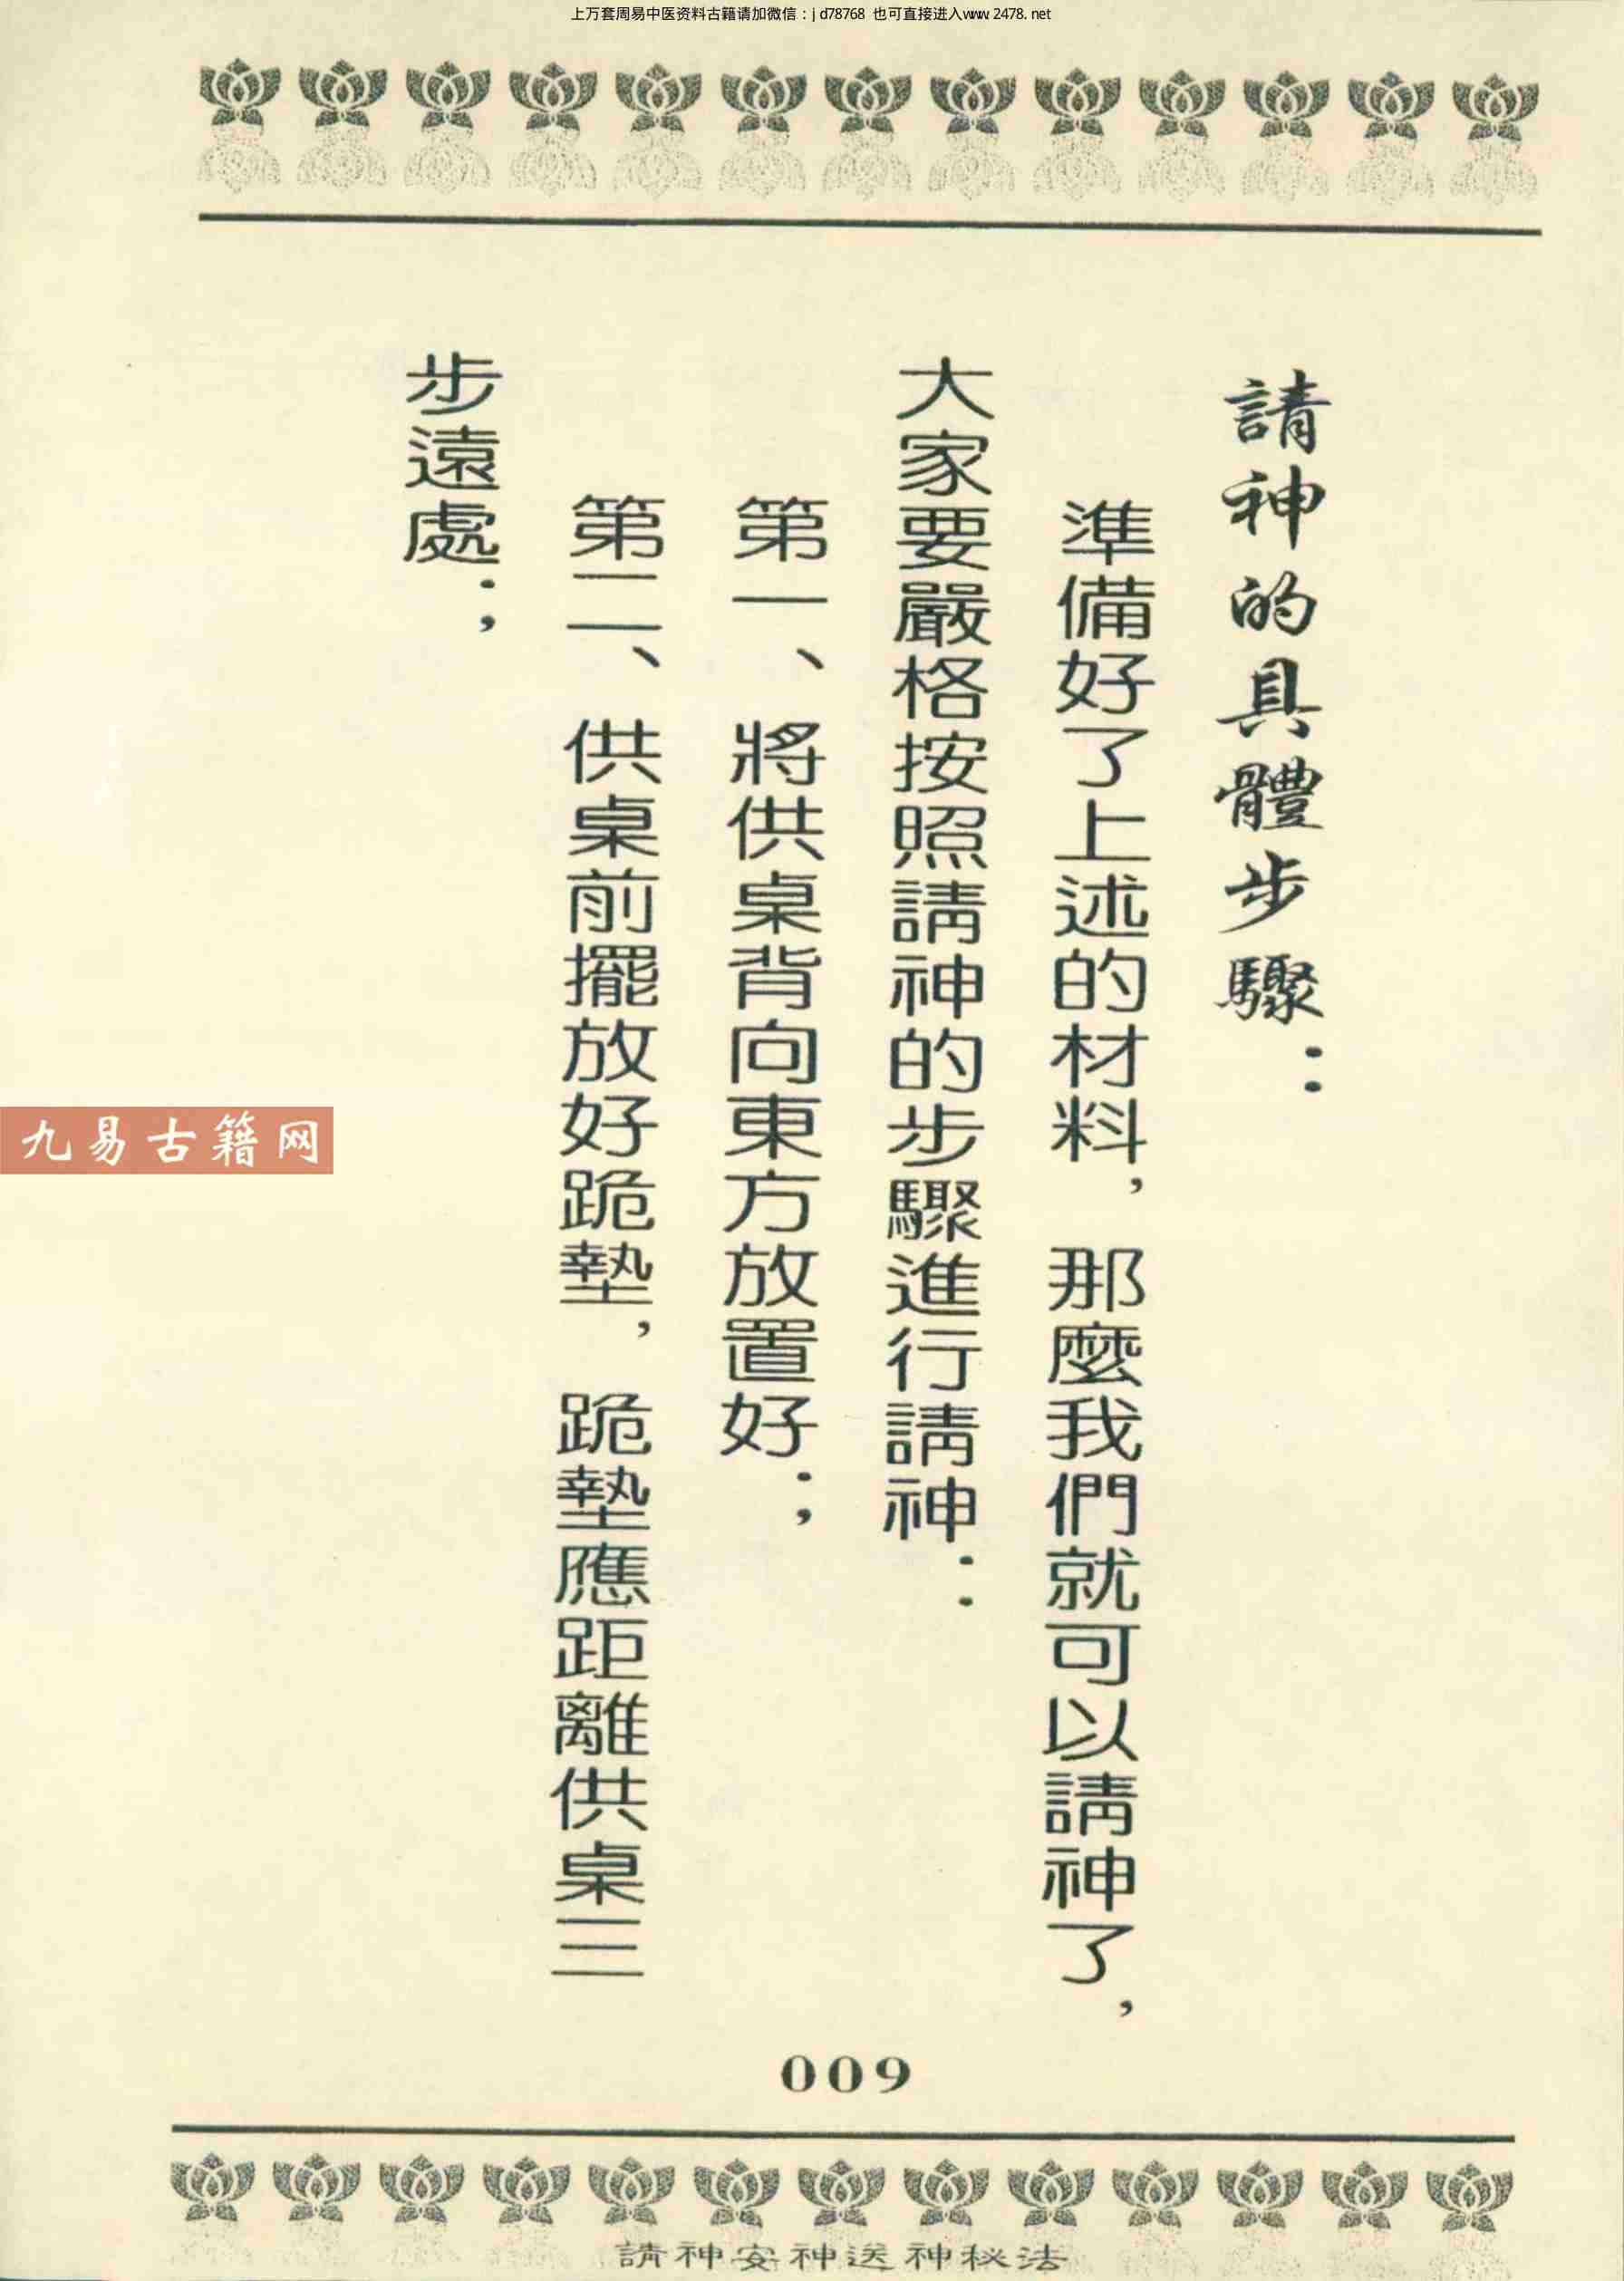 上万套周易中医资料古籍请加微信：jd78768 也可直接进入www.2478.net
請神的具體步驟：
準備好了上述的材料，那麼我們就可以請神了，
大家要嚴格按照請神的步驟進行請神：
第一、將供桌背向東方放置好；
第二、供桌前擺放好跪墊，跪墊應距離供桌三
步遠處；
九易古籍网
009
請神安神送神秘法